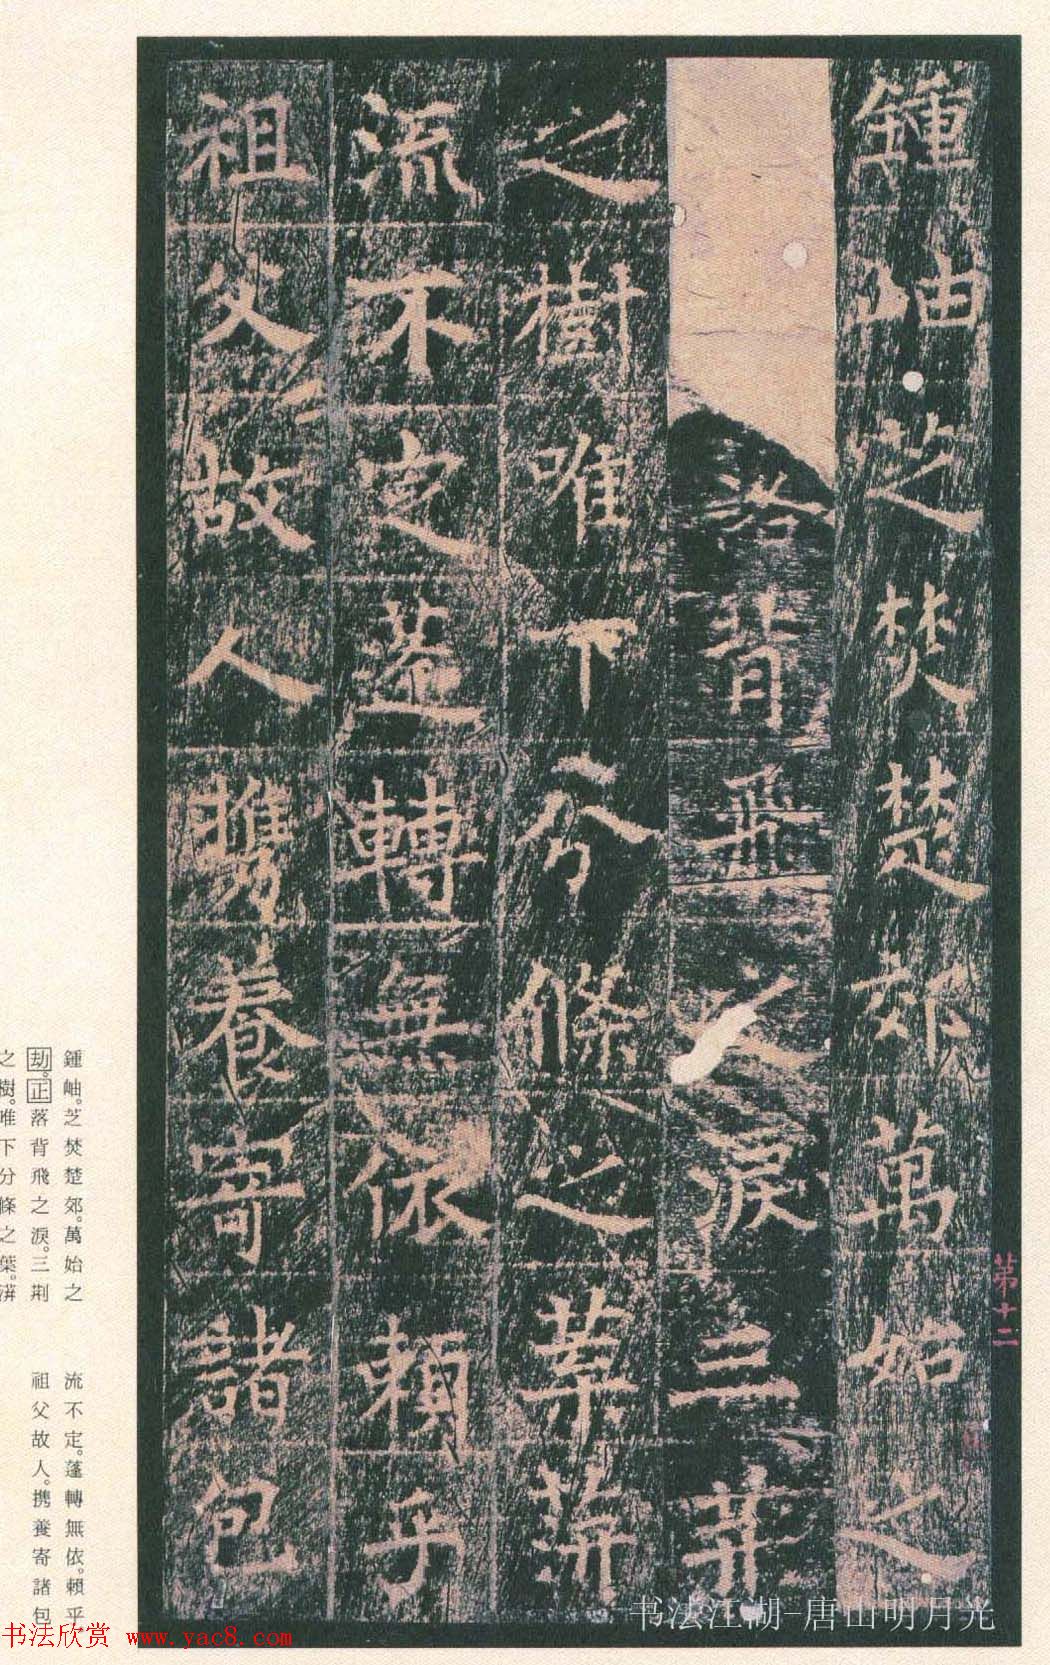 鍾岫芝焚楚郊萬始之
落背飛之淚三荆
之樹唯下分條之葉蓱
流不定蓬轉無依賴乎
祖父故人攜養寄諸包
第十二
鍾岫。芝焚楚郊。萬始之
劫。正落背飛之淚。三荆
之樹。唯下分條之葉。蓱
流不定。蓬轉無依。賴乎
祖父故人。携養寄諸包
书法江湖-唐山明月光
书法欣赏 www.yac8.com